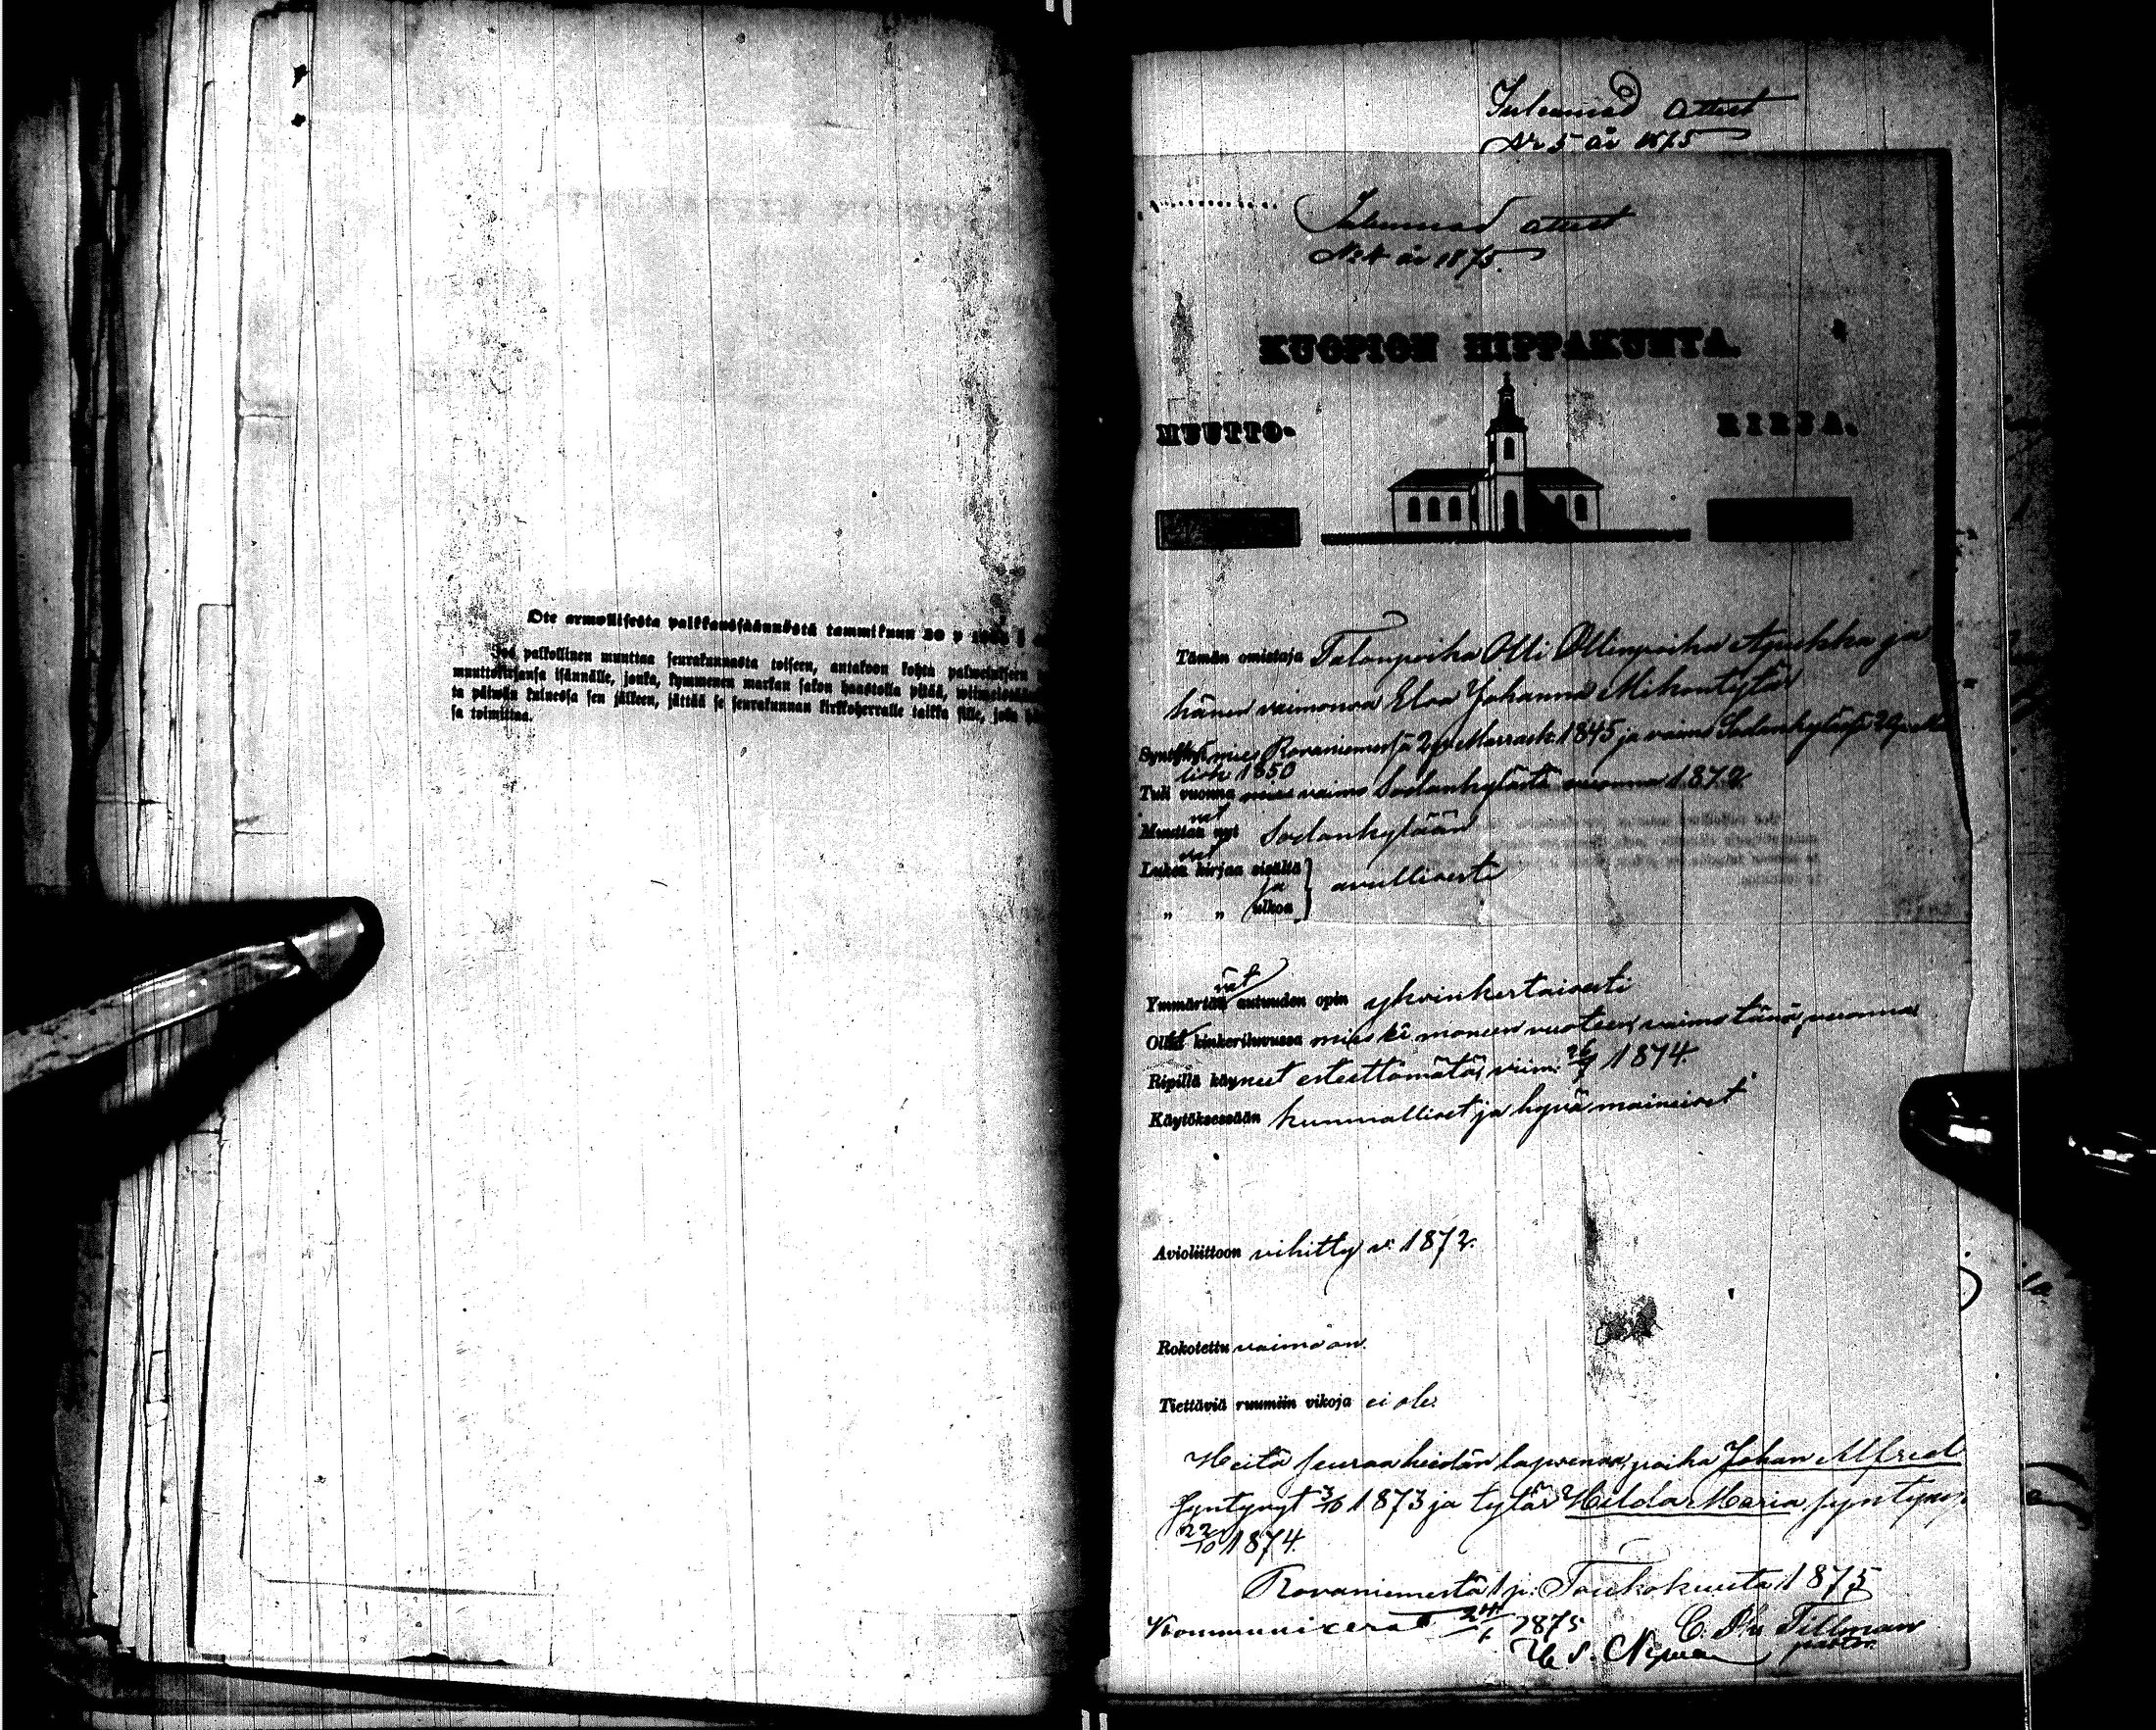 Ote armollisesta palkkaussäännöstä tammikuun 30 p
Jos palkollinen muuttaa seurakunnasta toiseen, antakoon kohta palwelukseen
muuttokirjansa isännälle, jonka, kymmenen markan sakon haastolla pitää,
ta päiwän kuluessa sen jälkeen, jättää se seurakunnan kirkkoherralle taikka sille, joka
sa toimittaa.
Inlemnad Attest
No 5 år 1875
Inlemnad attest
No 4 år 1875.
KUOPION HIPPAKUNTA.
MUUTTO-
KIRJA.
Tämän omistaja Talonpoika Olli Ollinpoika Apukka ja
hänen vaimonsa Elsa Johanna Mikontytär
Syntynyt mies Rovaniemessä 2 p. Marrask. 1845 ja vaimo Sodankylässä 29 p.
1850
Tuli vuonna vaimo Sodankylästä vuonna 1872.
vat
Muuttaa nyt Sodankylään
vat
Lukea kirjaa sisältä
ja } avullisesti
„ „ ulkoa
vät
Ymmärtää autuuden opin yksinkertaisesti
Ollut kinkeriluvussa mies ei moneen vuoteen, vaimo tänä vuonna
Ripillä käyneet esteettömätä, viim. 26/7 1874.
Käytöksessään kunnialliset ja hyvä maineiset
Avioliittoon vihitty v. 1872.
Rokotettu vaimo on.
Tiettäviä ruumiin vikoja ei ole.
Heitä seuraa heidän lapsensa, poika Johan Alfred
syntynyt 3/10 1873 ja tytär Hilda Maria, syntynyt
22/10 1874.
Rovaniemestä 1 p. Toukokuuta 1875
Kommunicerat 24/6 1875 C. Tillman
pastor.